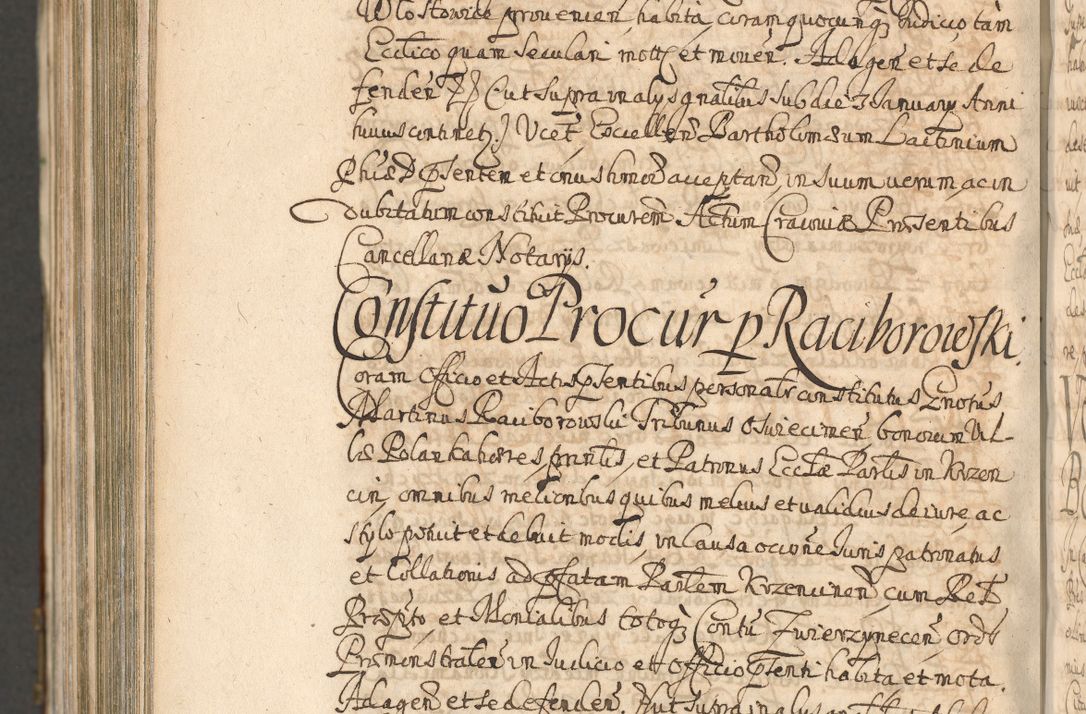 Wlostowice provenien̄, habita, coram quocunq̨ Iudicio tam
Ecclīco quam Seculari mott: et mouen̄. Ad agen̄ et se de
fenden̄ PP Cut supra in alys q̄nalibus sub die 3 January Anni
huius continet.) Vcet Excellen̄ Bartholomæum Laitinium
Phiæ D p̄senten̄ et onus hmōi acceptan̄, in suum uerum ac in
dubitatum constituit Procurem̄ Actum Cracouiæ Præsentibus
Cancellariæ Notarys.
Constituō Procur̄ p Raciborowski.
Coram Officio et Actis p̄sentibus personalr̄ constitutus Gnosūs
Martinus Raciborowski Tribunus Osuiecimen̄ bonorum Vil-
læ Polanka hæres, prīntis, et Patronus Eccłæ Parłis in Krzen
cin, omnibus melioribus quibus melius et ualidius de iure ac
stylo potuit et debuit modis, in Causa ōcōne Iuris patronatus
et Collationis ad p̄fatam Parłem Krzencinen̄ cum Reł
Præp̄to et Monialibus totoq̨ Contū Zwierzynecen̄ ordī
Præmonstraten̄ in Iudicio et Officio p̄senti habita et mota.
Ad agen̄ et se defenden̄.